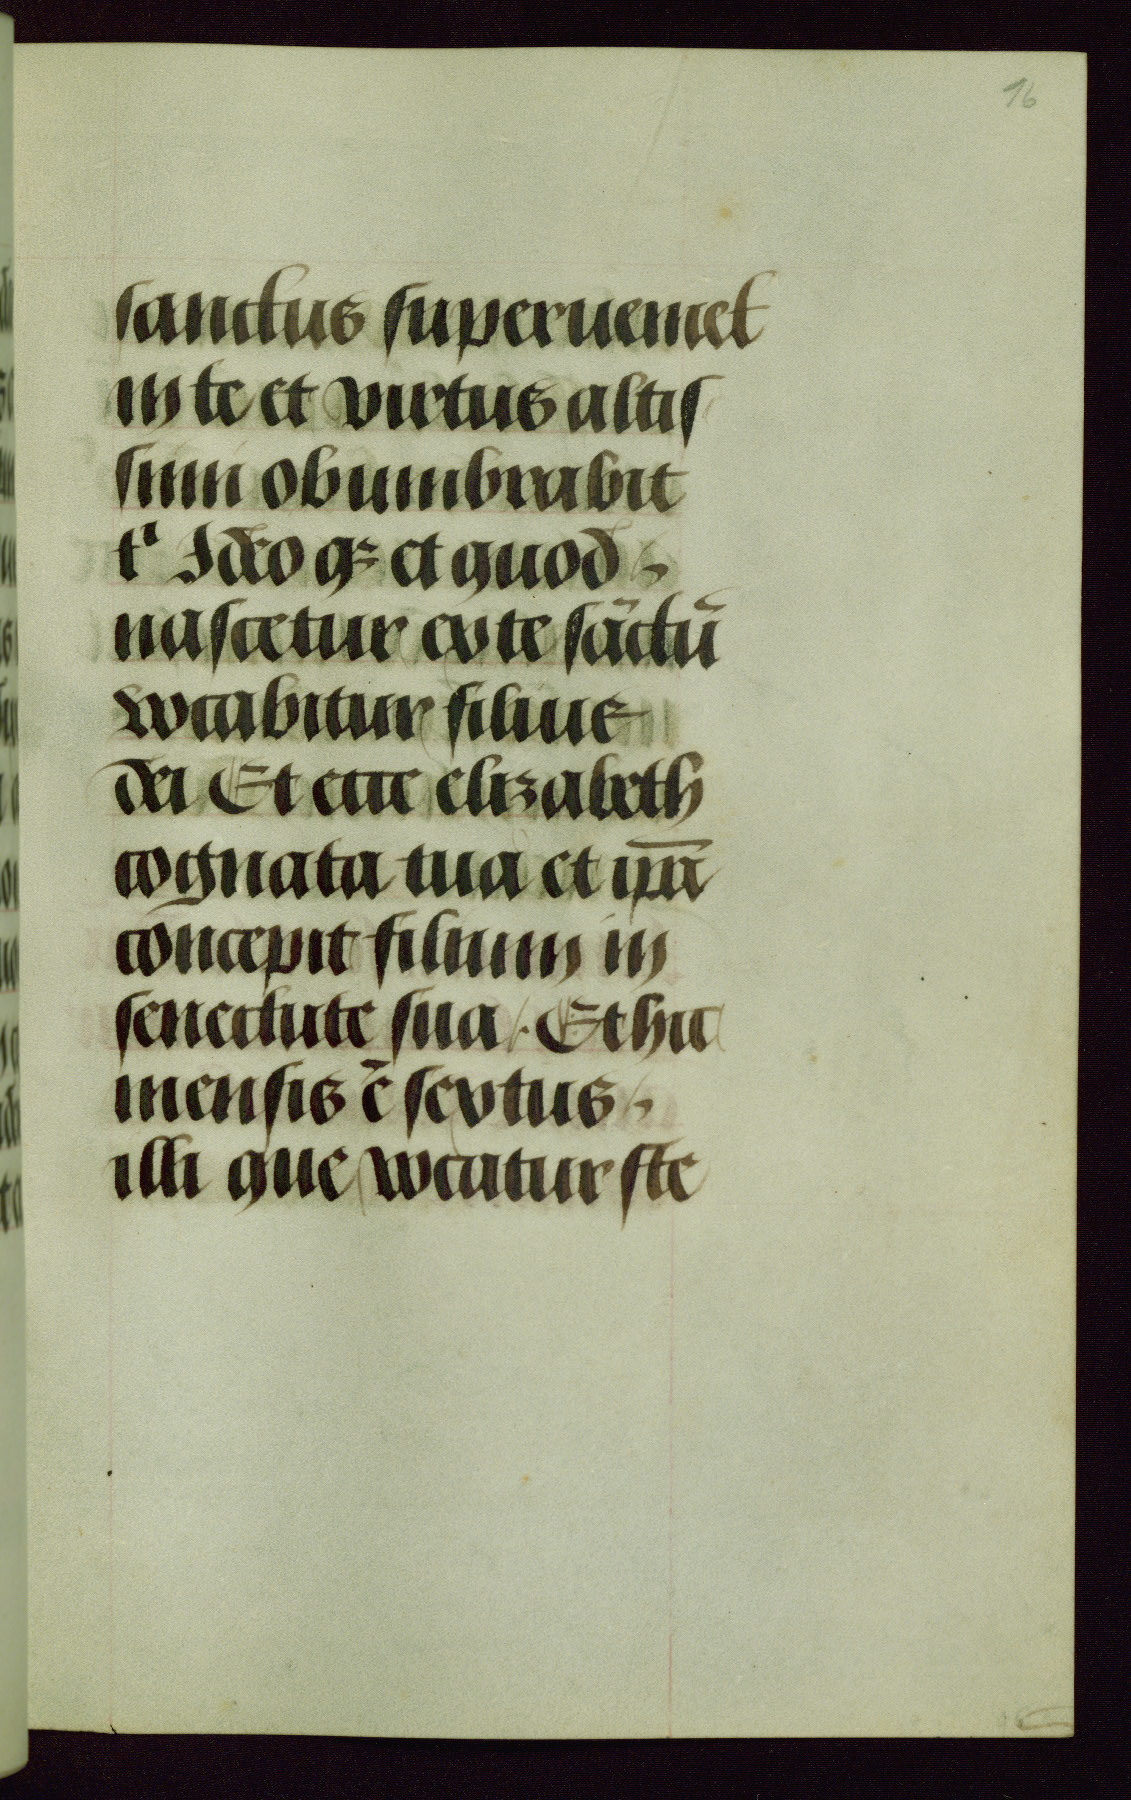 16
sanctus superueniet
in te et virtus altis
simi obumbrabit
tⁱ Ideo qꝫ et quod
nascetur ex te sāctū
vocabitur filius
dei Et ecce elizabeth
cognata tua et ip̄a
concepit filium in
senectute sua /. Et hic
mensis ē sextus
illi que vocatur ste